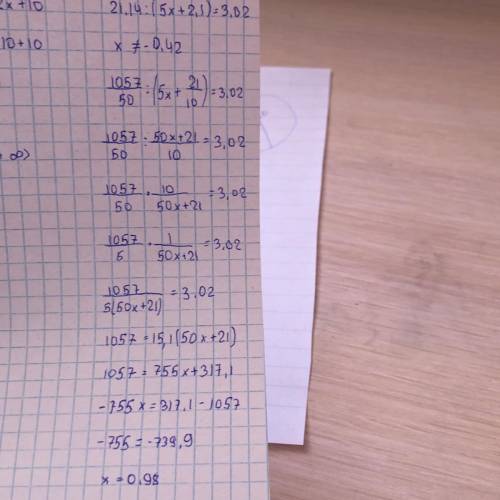 2x+10
10+10
; ∞)
21,14:(5x+2,1)=3,02
x ≠ -0,42
1057/50 : (5x + 21/10) = 3,02
1057/50 : 50x+21/10 = 3,02
1057/50 · 10/50x+21 = 3,02
1057/5 · 1/50x+21 = 3,02
1057/5(50x+21) = 3,02
1057 = 15,1(50x+21)
1057 = 755x+317,1
-755x = 317,1 - 1057
-755 = -739,9
x = 0,98